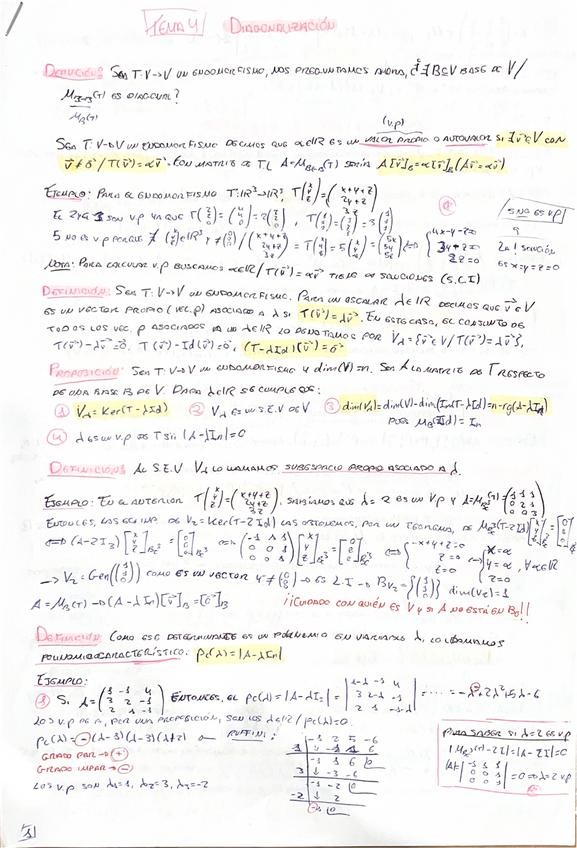 TEMA 4 DIAGONALIZACIÓN
DEFINICIÓN: SEA T: V→V UN ENDOMORFISMO, NOS PREGUNTAMOS AHORA, ¿∃ B⊆V BASE DE V/
M_{B→B}(T) ES DIAGONAL?
M_B(T)
(V.P)
SEA T: V→V UN ENDOMORFISMO DECIMOS QUE α∈ℝ ES UN VALOR PROPIO O AUTOVALOR SI ∃ v⃗∈V CON
v⃗≠0⃗ / T(v⃗)=αv⃗. CON MATRIZ DE T.L A=M_{B→B}(T) SERÍA A[v⃗]_B=α[v⃗]_B (Av⃗=αv⃗)
EJEMPLO: PARA EL ENDOMORFISMO T: ℝ³→ℝ³, T(x y z)=(x+y+z 2y+z 3z)
5 NO ES V.P
5 NO ES V.P PORQUE ∄ (x y z)∈ℝ³ Y ≠(0 0 0) / (x+y+z 2y+z 3z) = T(x y z) = 5(x y z) = (5x 5y 5z) ⟺
NOTA: PARA CALCULAR V.P BUSCAMOS α∈ℝ / T(v⃗)=αv⃗ TIENE ∞ SOLUCIONES (S.C.I)
DEFINICIÓN: SEA T: V→V UN ENDOMORFISMO. PARA UN ESCALAR λ∈ℝ DECIMOS QUE v⃗∈V
ES UN VECTOR PROPIO (VEC.P) ASOCIADO A λ SI T(v⃗)=λv⃗. EN ESTE CASO, EL CONJUNTO DE
TODOS LOS VEC. P ASOCIADOS A UN λ∈ℝ LO DENOTAMOS POR V_λ={v⃗∈V / T(v⃗)=λv⃗},
T(v⃗)-λv⃗=0⃗, T(v⃗)-λId(v⃗)=0⃗, (T-λId)(v⃗)=0⃗
PROPOSICIÓN: SEA T: V→V UN ENDOMORFISMO Y dim(V)=n. SEA A LA MATRIZ DE T RESPECTO
DE UNA BASE B DE V. PARA λ∈ℝ SE CUMPLE QUE:
① V_λ=Ker(T-λId) ② V_λ ES UN S.E.V DE V ③ dim(V_λ)=dim(V)-dim(Im(T-λId))=n-rg(A-λI_n)
POR M_B(Id)=I_n
④ λ ES UN V.P DE T SII |A-λI|=0
DEFINICIÓN: AL S.E.V V_λ LO LLAMAMOS SUBESPACIO PROPIO ASOCIADO A λ.
EJEMPLO: EN EL ANTERIOR T(x y z)=(x+y+z 2y+z 3z), SABÍAMOS QUE λ=2 ES UN V.P Y A=M(T)=(1 1 1 0 2 1 0 0 3)
ENTONCES, LAS EC. IMP. DE V₂=Ker(T-2Id) LAS OBTENEMOS, POR UN TEOREMA, DE
⟺ (A-2I₃)[x y z]=[0 0 0] ⟺ (-1 1 1 0 0 1 0 0 1)[x y z]=[0 0 0] ⟺ {-x+y+z=0 z=0 z=0 ⟺ {x=α y=α, ∀α∈ℝ z=0
→ V₂=Gen{(1 1 0)} COMO ES UN VECTOR Y ≠(0 0 0) → ES L.I → B_{V₂}={(1 1 0)} dim(V₂)=1
A=M_B(T) → (A-λI_n)[v⃗]_B=[0⃗]_B ¡¡CUIDADO CON QUIÉN ES V Y SI A NO ESTÁ EN B_c!!
DEFINICIÓN: COMO ESE DETERMINANTE ES UN POLINOMIO EN VARIABLE λ, LO LLAMAMOS
POLINOMIO CARACTERÍSTICO: p_c(λ)=|A-λI_n|
EJEMPLO:
① SI A=(1 -1 4 3 2 -1 2 1 -1) ENTONCES, EL p_c(λ)=|A-λI₃|=|1-λ -1 4 3 2-λ -1 2 1 -1-λ|=....=-λ³+2λ²+5λ-6
LOS V.P DE A, POR UNA PROPOSICIÓN, SON LOS λ∈ℝ / p_c(λ)=0.
p_c(λ)=-(λ-1)(λ-3)(λ+2) ← RUFFINI:
GRADO PAR→ +
GRADO IMPAR→ -
LOS V.P SON λ₁=1, λ₂=3, λ₃=-2
-1 2 5 -6
1 ↓ -1 1 6
-1 1 6 0
3 ↓ -3 -6
-1 -2 0
-2 ↓ 2
-1 0
PARA SABER SI λ=2 ES V.P
|M(T)-2I|=|A-2I|=0
|-1 1 1 0 0 1 0 0 1|=0 ⟹ λ=2 V.P